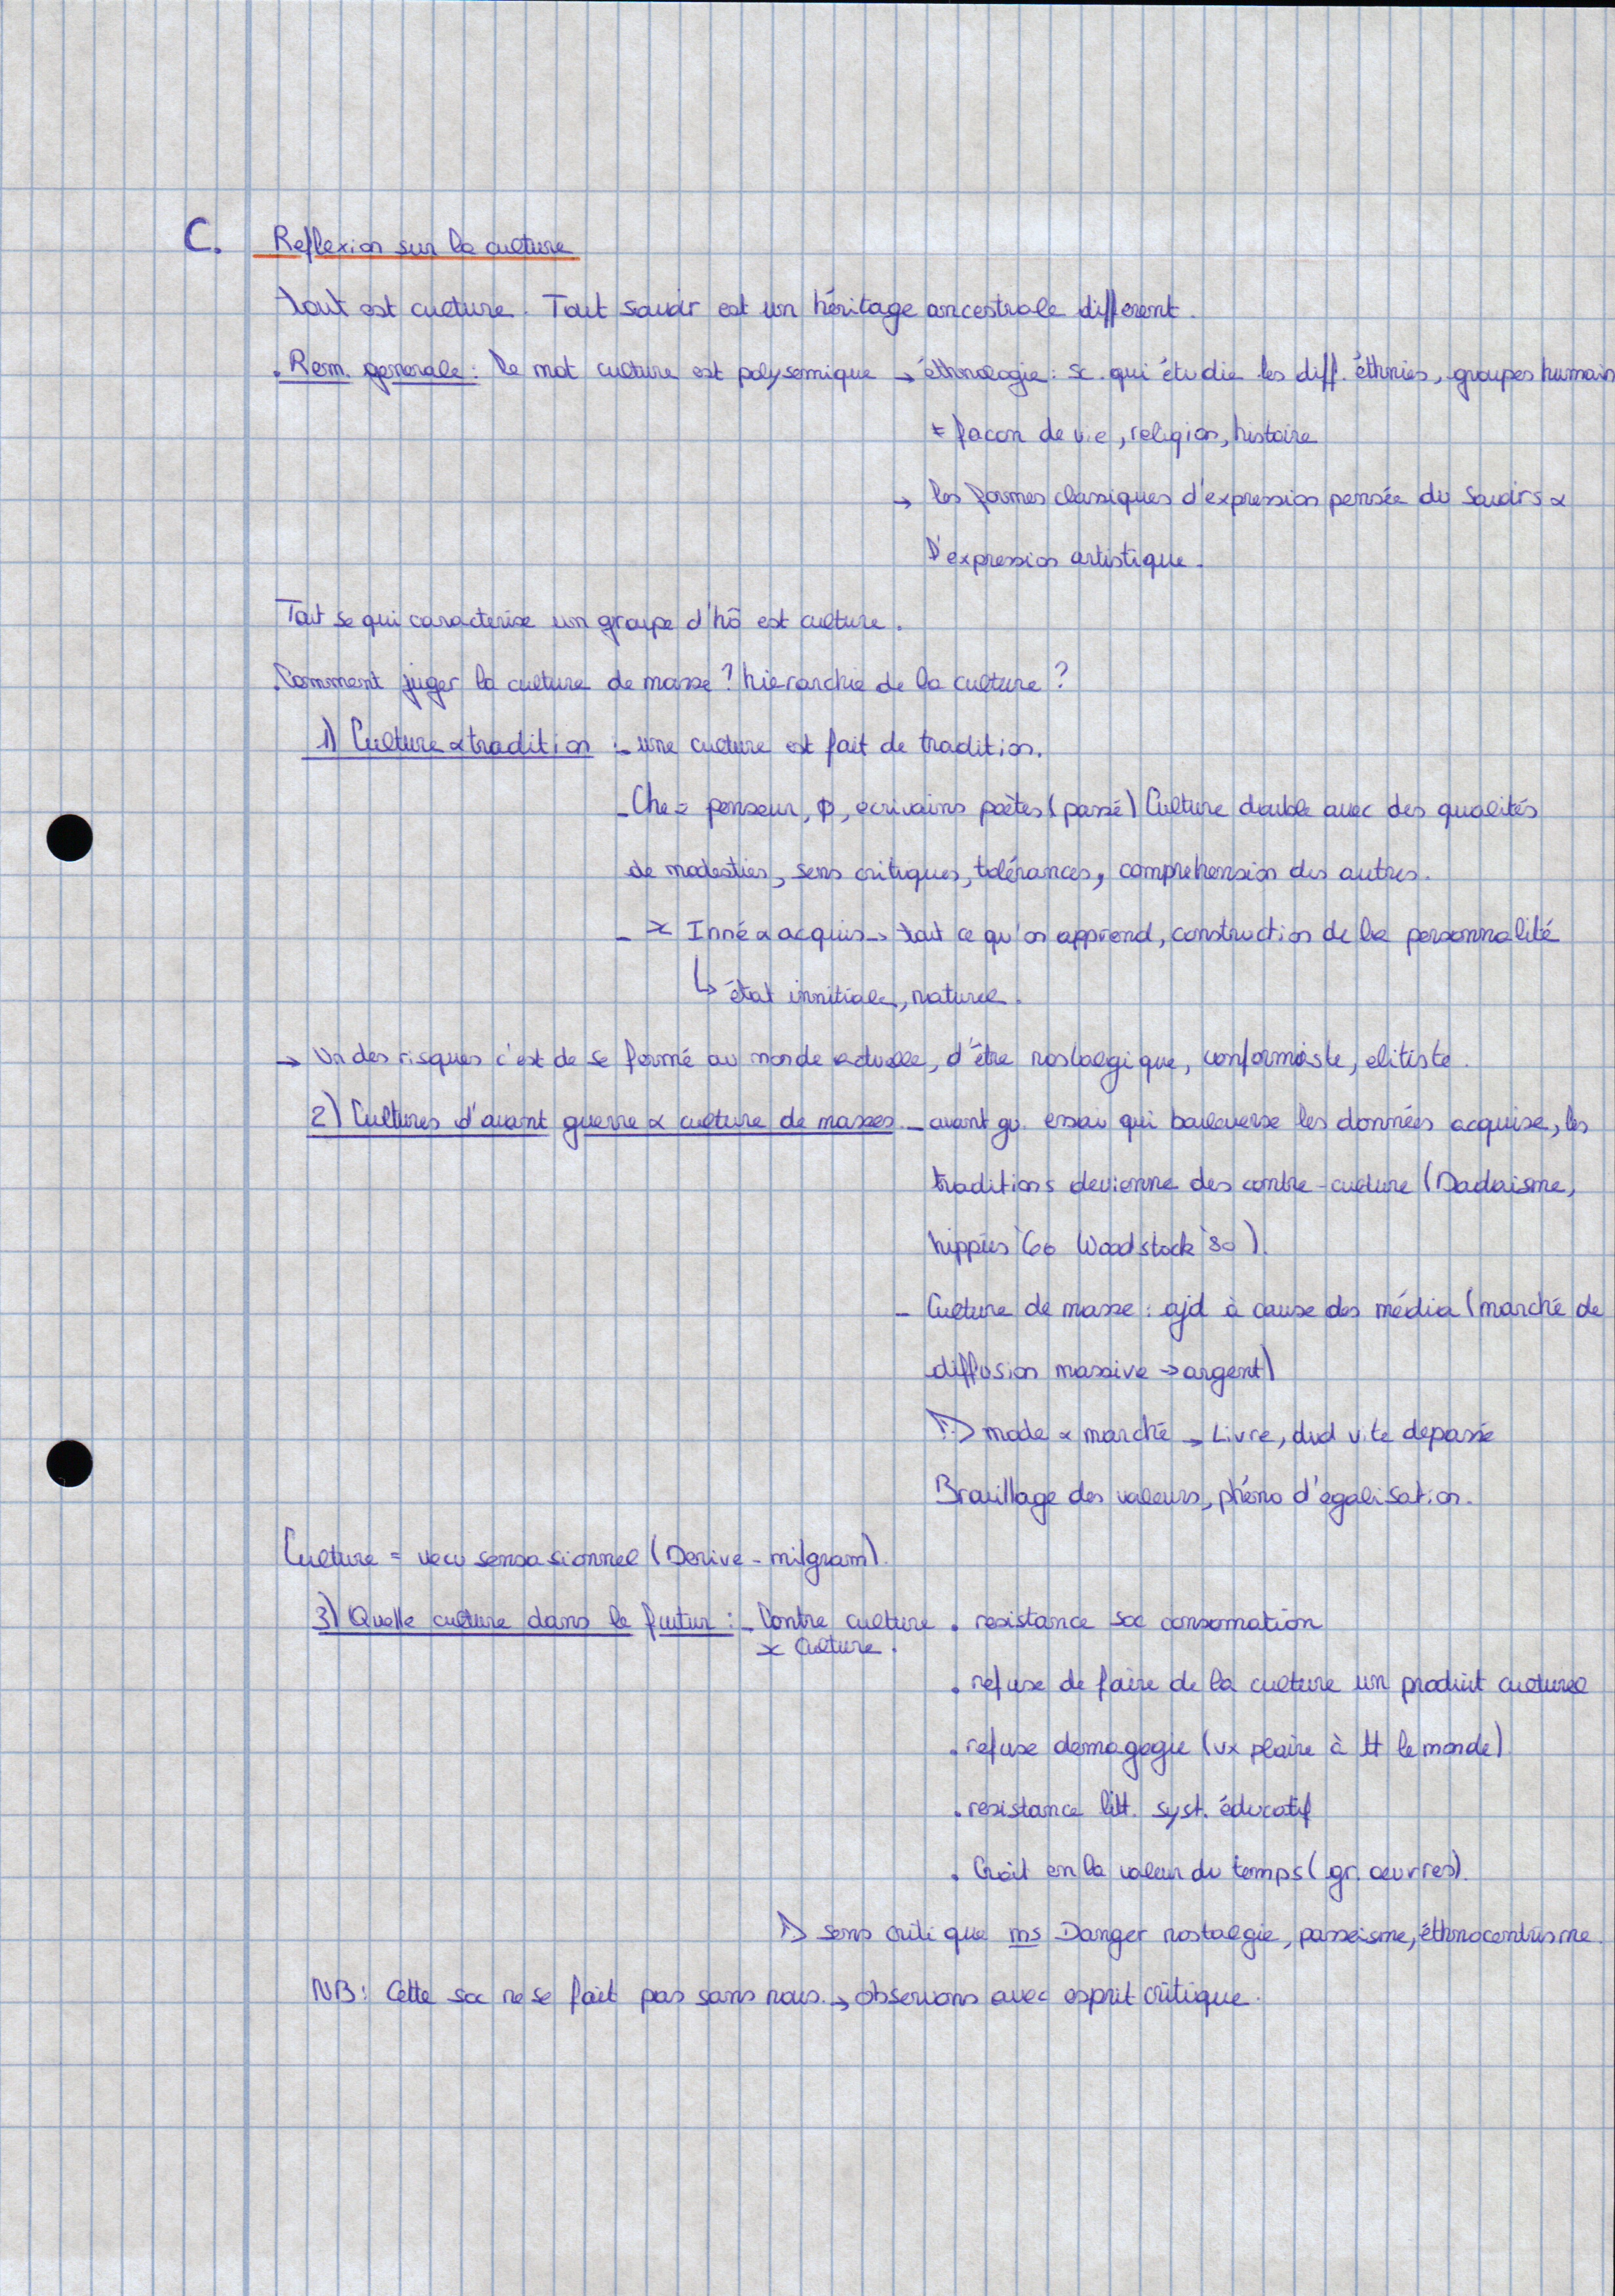 C. Reflexion sur la culture
tout est culture. Tout savoir est un héritage ancestrale différent.
. Rem. generale : Le mot culture est polysemique → éthnologie : sc. qui étudie les diff. éthnies, groupes humain
≠ facon de vie, religion, histoire
→ les formes classiques d'expression pensée du savoirs &
D'expression artistique.
Tout se qui caracterise un groupe d'hô est culture.
.Comment juger la culture de masse ? hierarchie de la culture ?
1) Culture & tradition :- une culture est fait de tradition.
- Che = penseur, φ, ecrivains poètes (passé) Culture double avec des qualités
de modesties, sens critiques, tolérances, comprehension des autres.
- ≍ Inné & acquis → tout ce qu'on apprend, construction de la personnalité
↳ état innitiale, naturel.
→ Un des risques c'est de se fermé au monde actuelle, d'être nostalgique, conformiste, elitiste.
2) Cultures d'avant guerre & culture de masses - avant gu. essai qui bouleverse les données acquise, les
traditions devienne des contre-culture (Dadaisme,
hippies '60 Woodstock '80).
- Culture de masse : ajd à cause des média (marché de
diffusion massive → argent)
mode & marché → Livre, dvd vite depassé
Brouillage des valeurs, phéno d'égalisation.
Culture = vecu sensasionnel (Derive - milgram).
3) Quelle culture dans le futur : - Contre culture . resistance soc consomation
≍ Culture.
. refuse de faire de la culture un produit culturel
. refuse demagogie (vx plaire à tt le monde)
. resistance litt. syst. éducatif
. Croit en la valeur du temps (gr. œuvres).
sens critique ms Danger nostalgie, passeisme, éthnocentrisme.
NB : Cette soc ne se fait pas sans nous. → observons avec esprit critique.